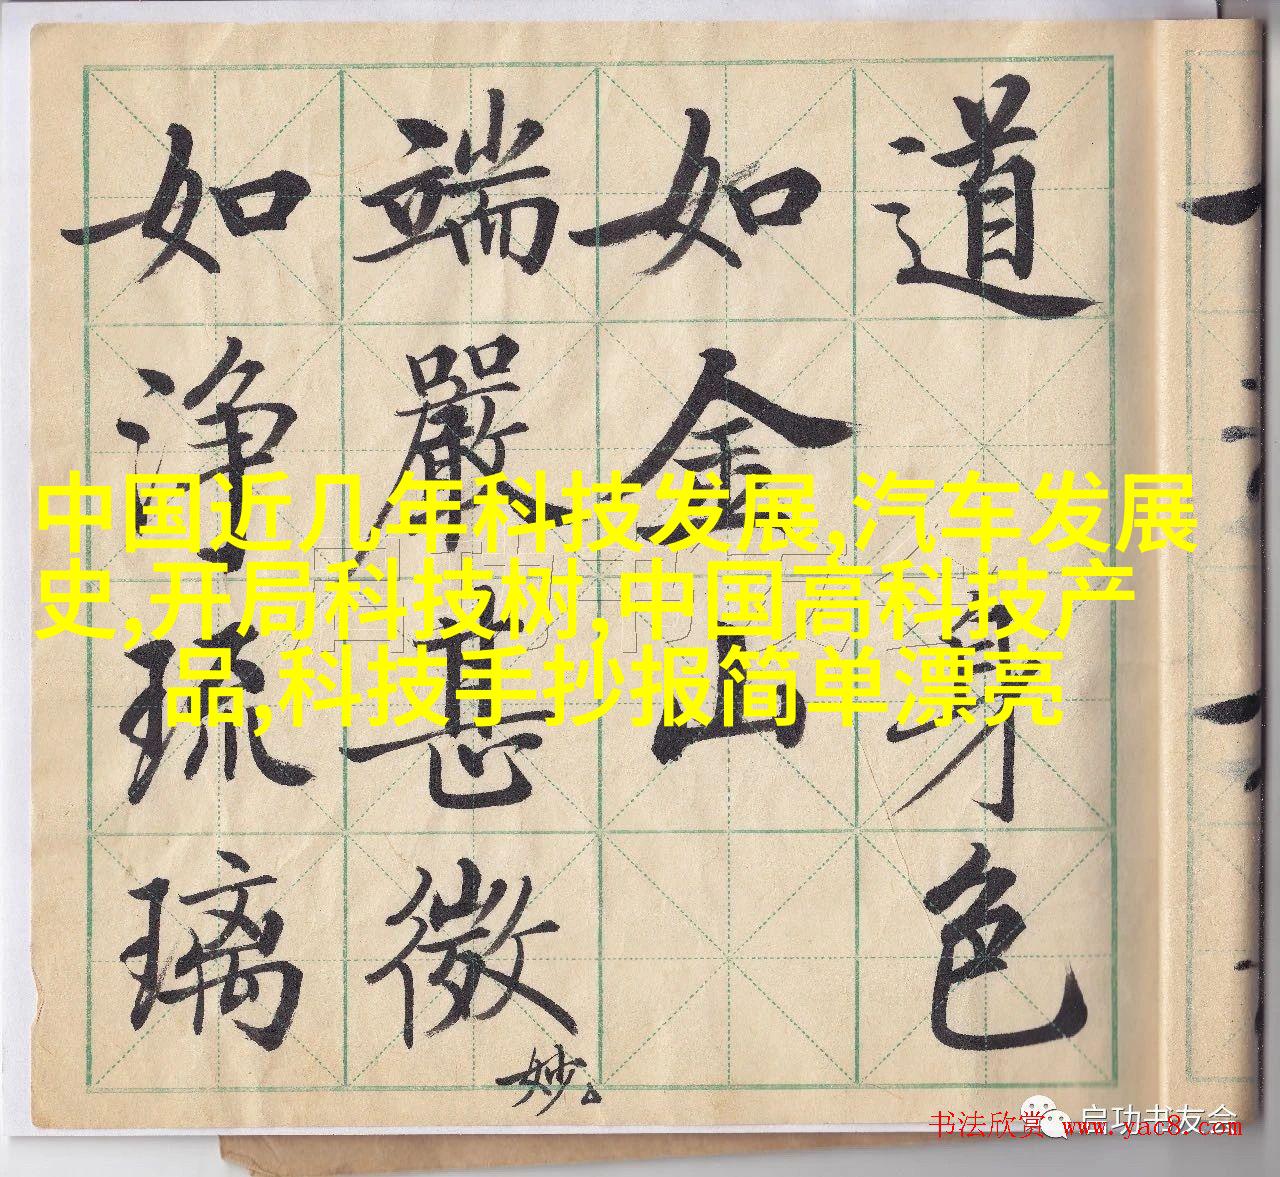 道身色
如金山
端嚴甚微妙
如浄琉璃
中国近几年科技发展,汽车发展
史,开局科技树,中国高科技产
品,科技手抄报简单漂亮
启功书友会
书法欣赏 www.yac8.com